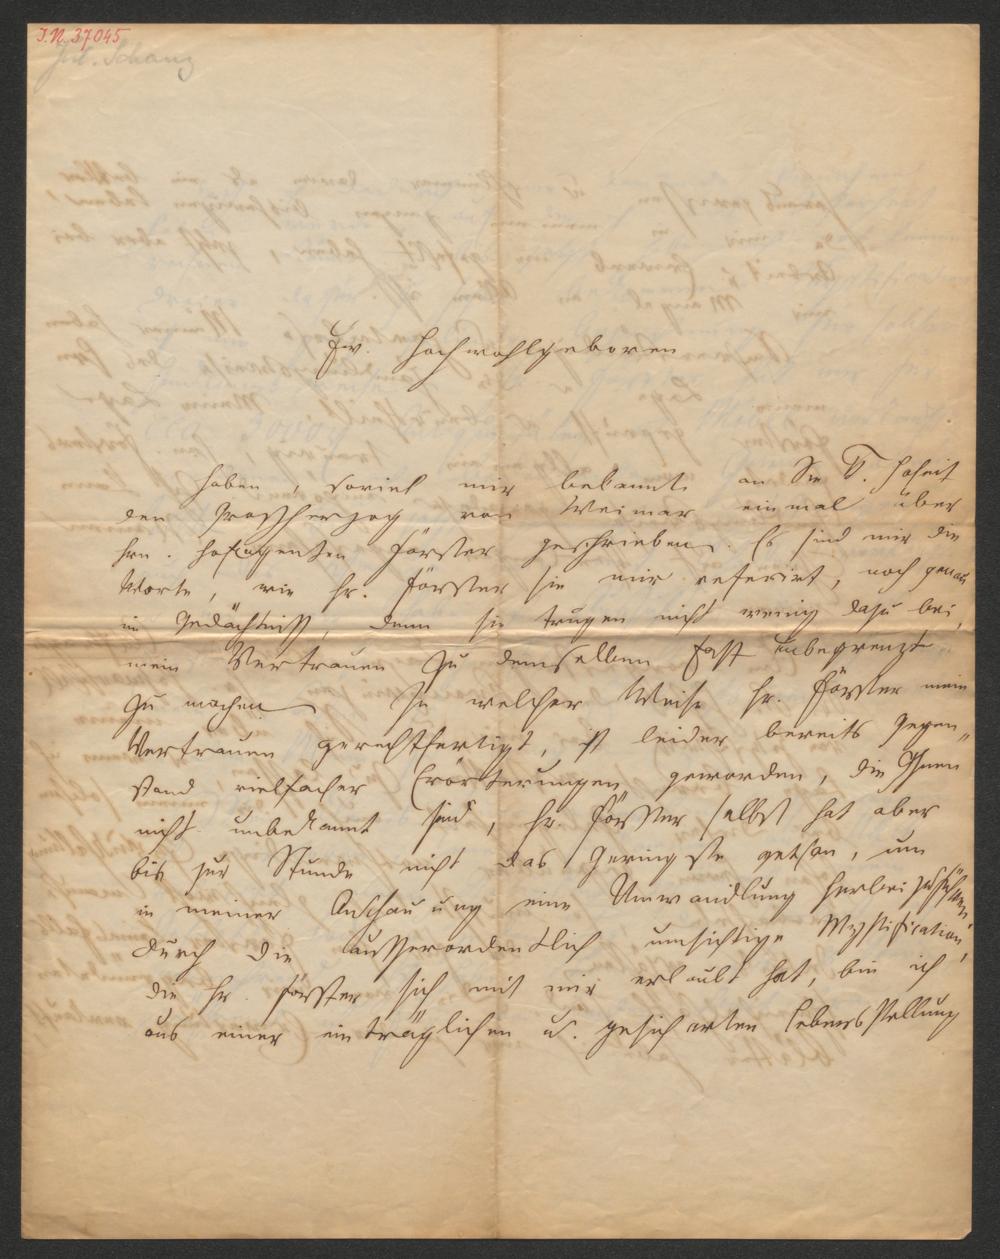 I.N. 37045
Jul. Schanz
Ew. Hochwohlgeboren
haben, soviel mir bekannt an Se K. Hoheit
den Großherzog von Weimar einmal über
Hrn. Hofagenten Förster geschrieben. Es sind mir die
Worte, wie Hr. Förster sie mir referirt, noch genau
im Gedächtniß, denn sie trugen nicht wenig dazu bei,
mein Vertrauen zu demselben fast unbegrenzt
zu machen. In welcher Weise Hr. Förster mein
Vertrauen gerechtfertigt, ist leider bereits Gegen„
stand vielfacher Erörterungen geworden, die Ihnen
nicht unbekannt sind, Hr. Förster selbst hat aber
bis zur Stunde nicht das Geringste gethan, um
in meiner Anschauung eine Umwandlung herbeizuführen,
Durch die außerordentlich umsichtige Mystification,
die Hr. Förster sich mit mir erlaubt hat, bin ich
aus einer einträglichen u. gesicherten Lebensstellung